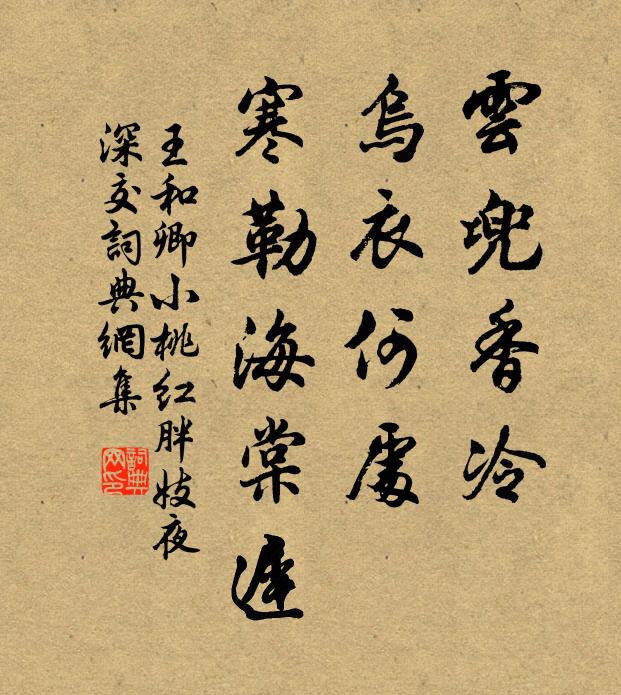 雲兜香冷
烏衣何處
寒勒海棠遲
王和卿小桃紅胖妓夜
深交詞典網集
詞典網印